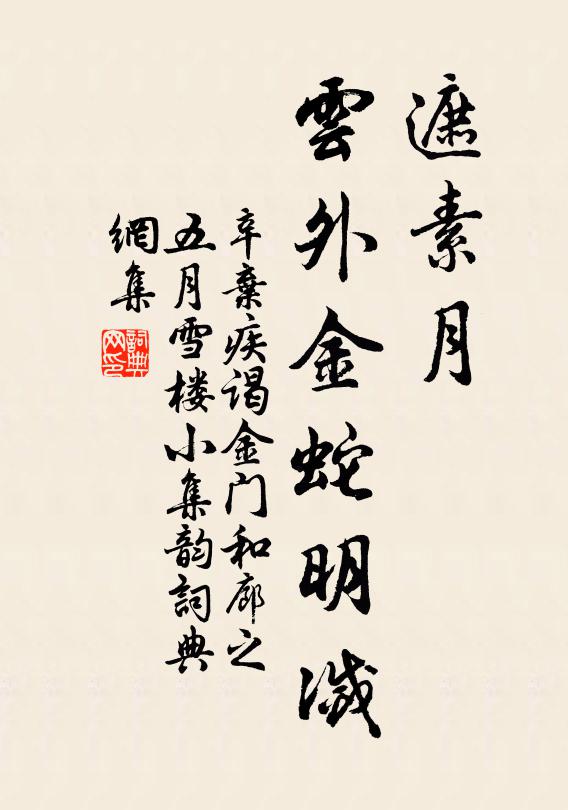 遮素月
雲外金蛇明滅
辛棄疾谒金门和廓之
五月雪楼小集韵詞典
網集
詞典網印